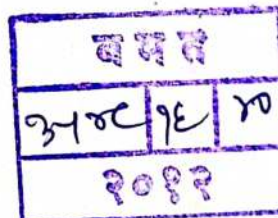 बमत
३१४८ १६ ४०
२०१२